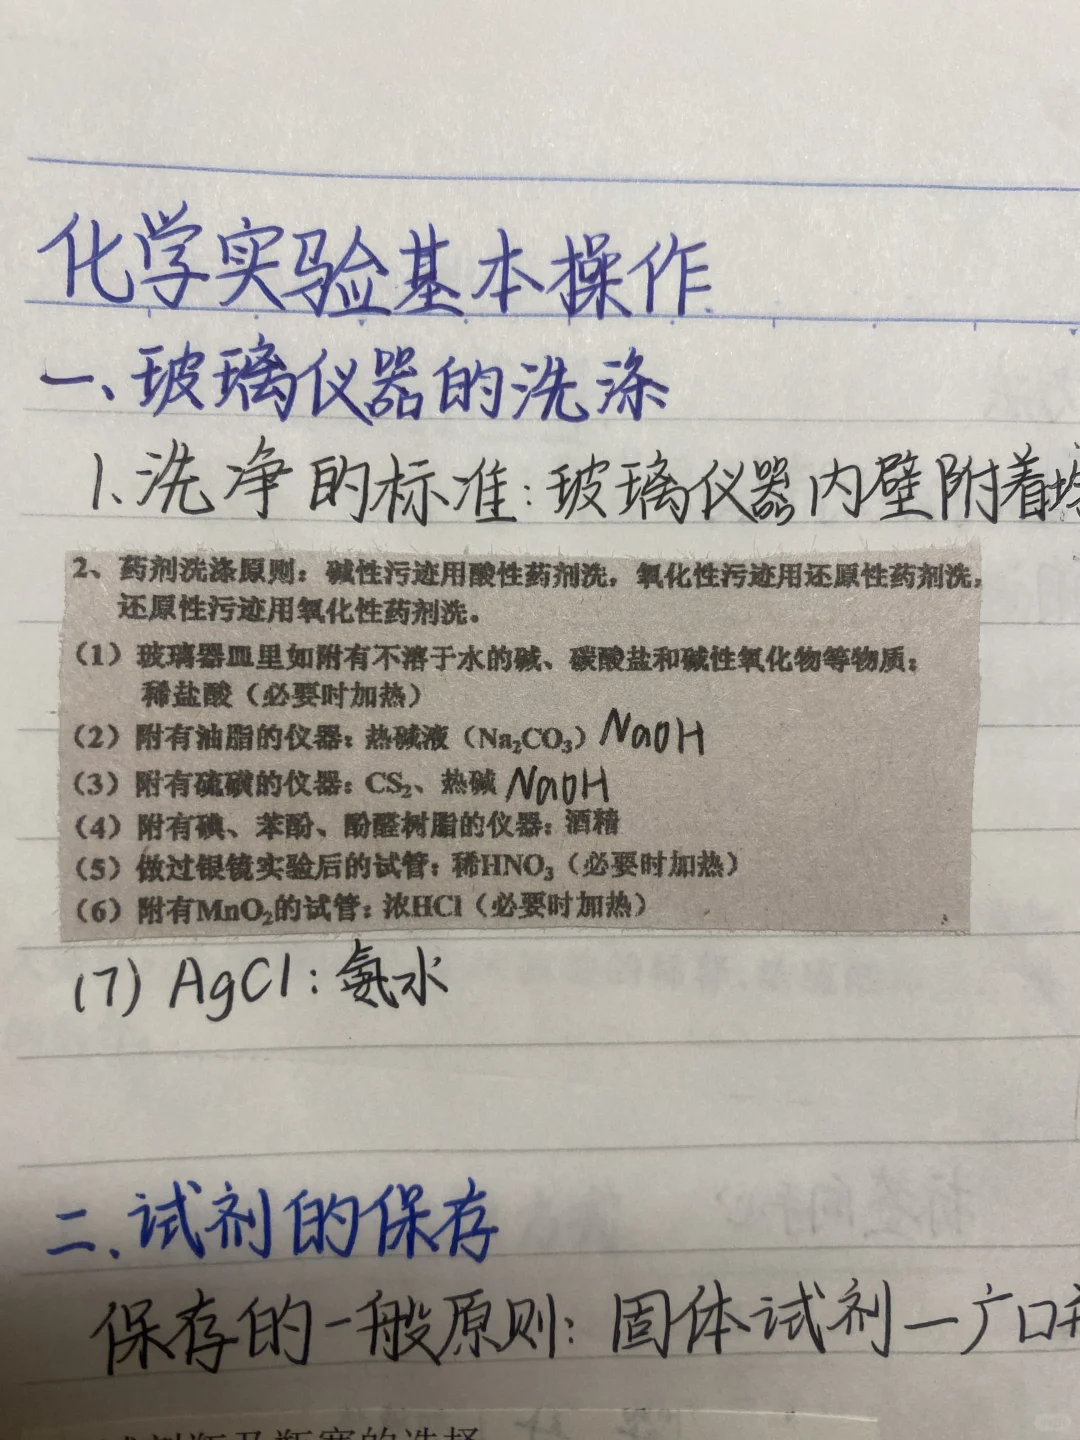 化学实验基本操作
一、玻璃仪器的洗涤
1、洗净的标准：玻璃仪器内壁附着均
2、药剂洗涤原则：碱性污迹用酸性药剂洗，氧化性污迹用还原性药剂洗，
还原性污迹用氧化性药剂洗。
（1）玻璃器皿里如附有不溶于水的碱、碳酸盐和碱性氧化物等物质：
稀盐酸（必要时加热）
（2）附有油脂的仪器：热碱液（Na₂CO₃）NaOH
（3）附有硫磺的仪器：CS₂、热碱 NaOH
（4）附有碘、苯酚、酚醛树脂的仪器：酒精
（5）做过银镜实验后的试管：稀HNO₃（必要时加热）
（6）附有MnO₂的试管：浓HCl（必要时加热）
(7) AgCl：氨水
二、试剂的保存
保存的一般原则：固体试剂—广口